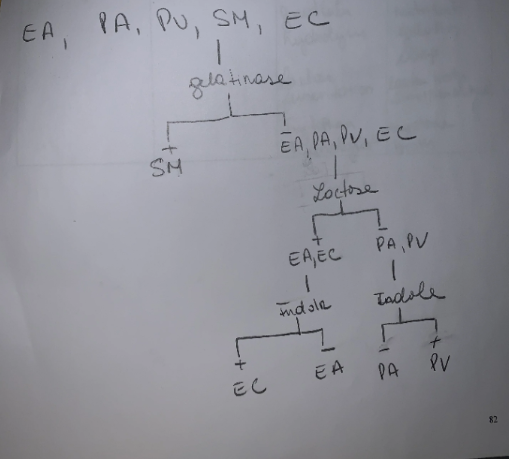 EA, PA, PV, SM, EC
gelatinase
+ −
SM EA, PA, PV, EC
Lactose
+ −
EA, EC PA, PV
Indole Indole
+ − − +
EC EA PA PV
82